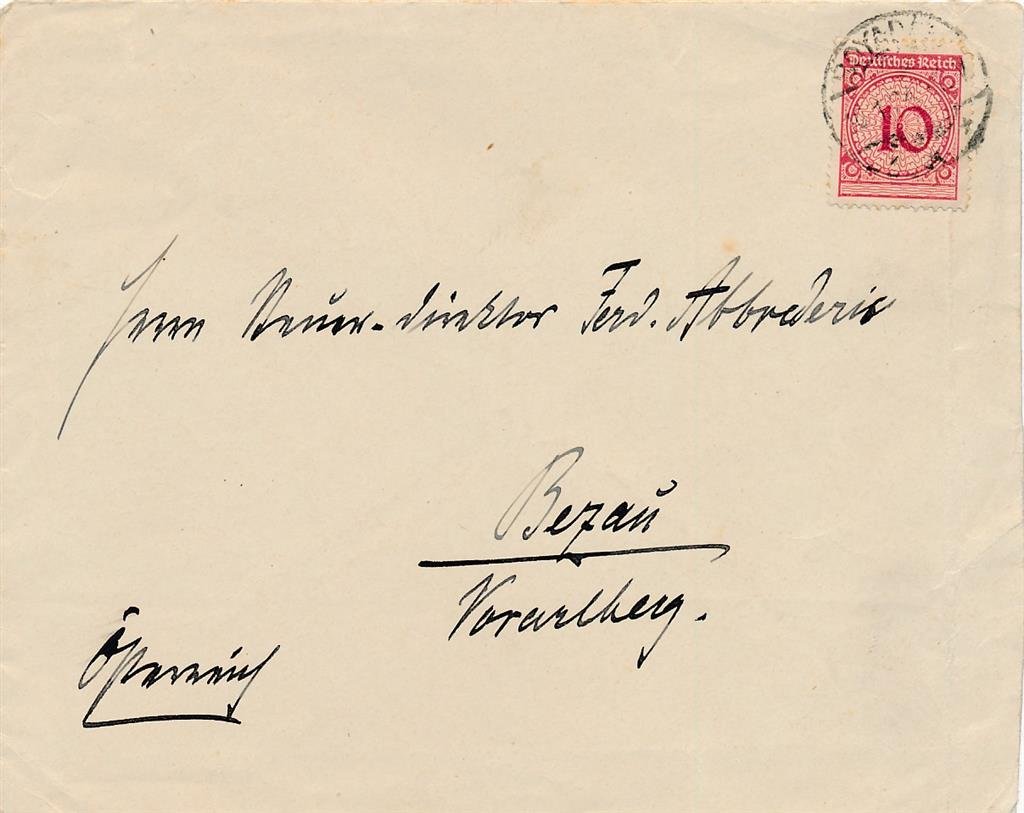 Deutsches Reich
10
Herrn Steuer-direktor Ferd. Abbrederis
Bezau
Vorarlberg.
Österreich